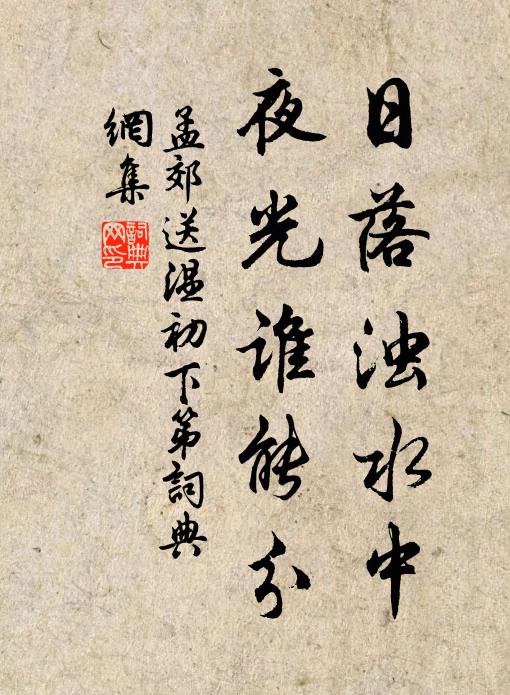 日落浊水中
夜光谁能分
孟郊送温初下第詞典
網集
詞典网印